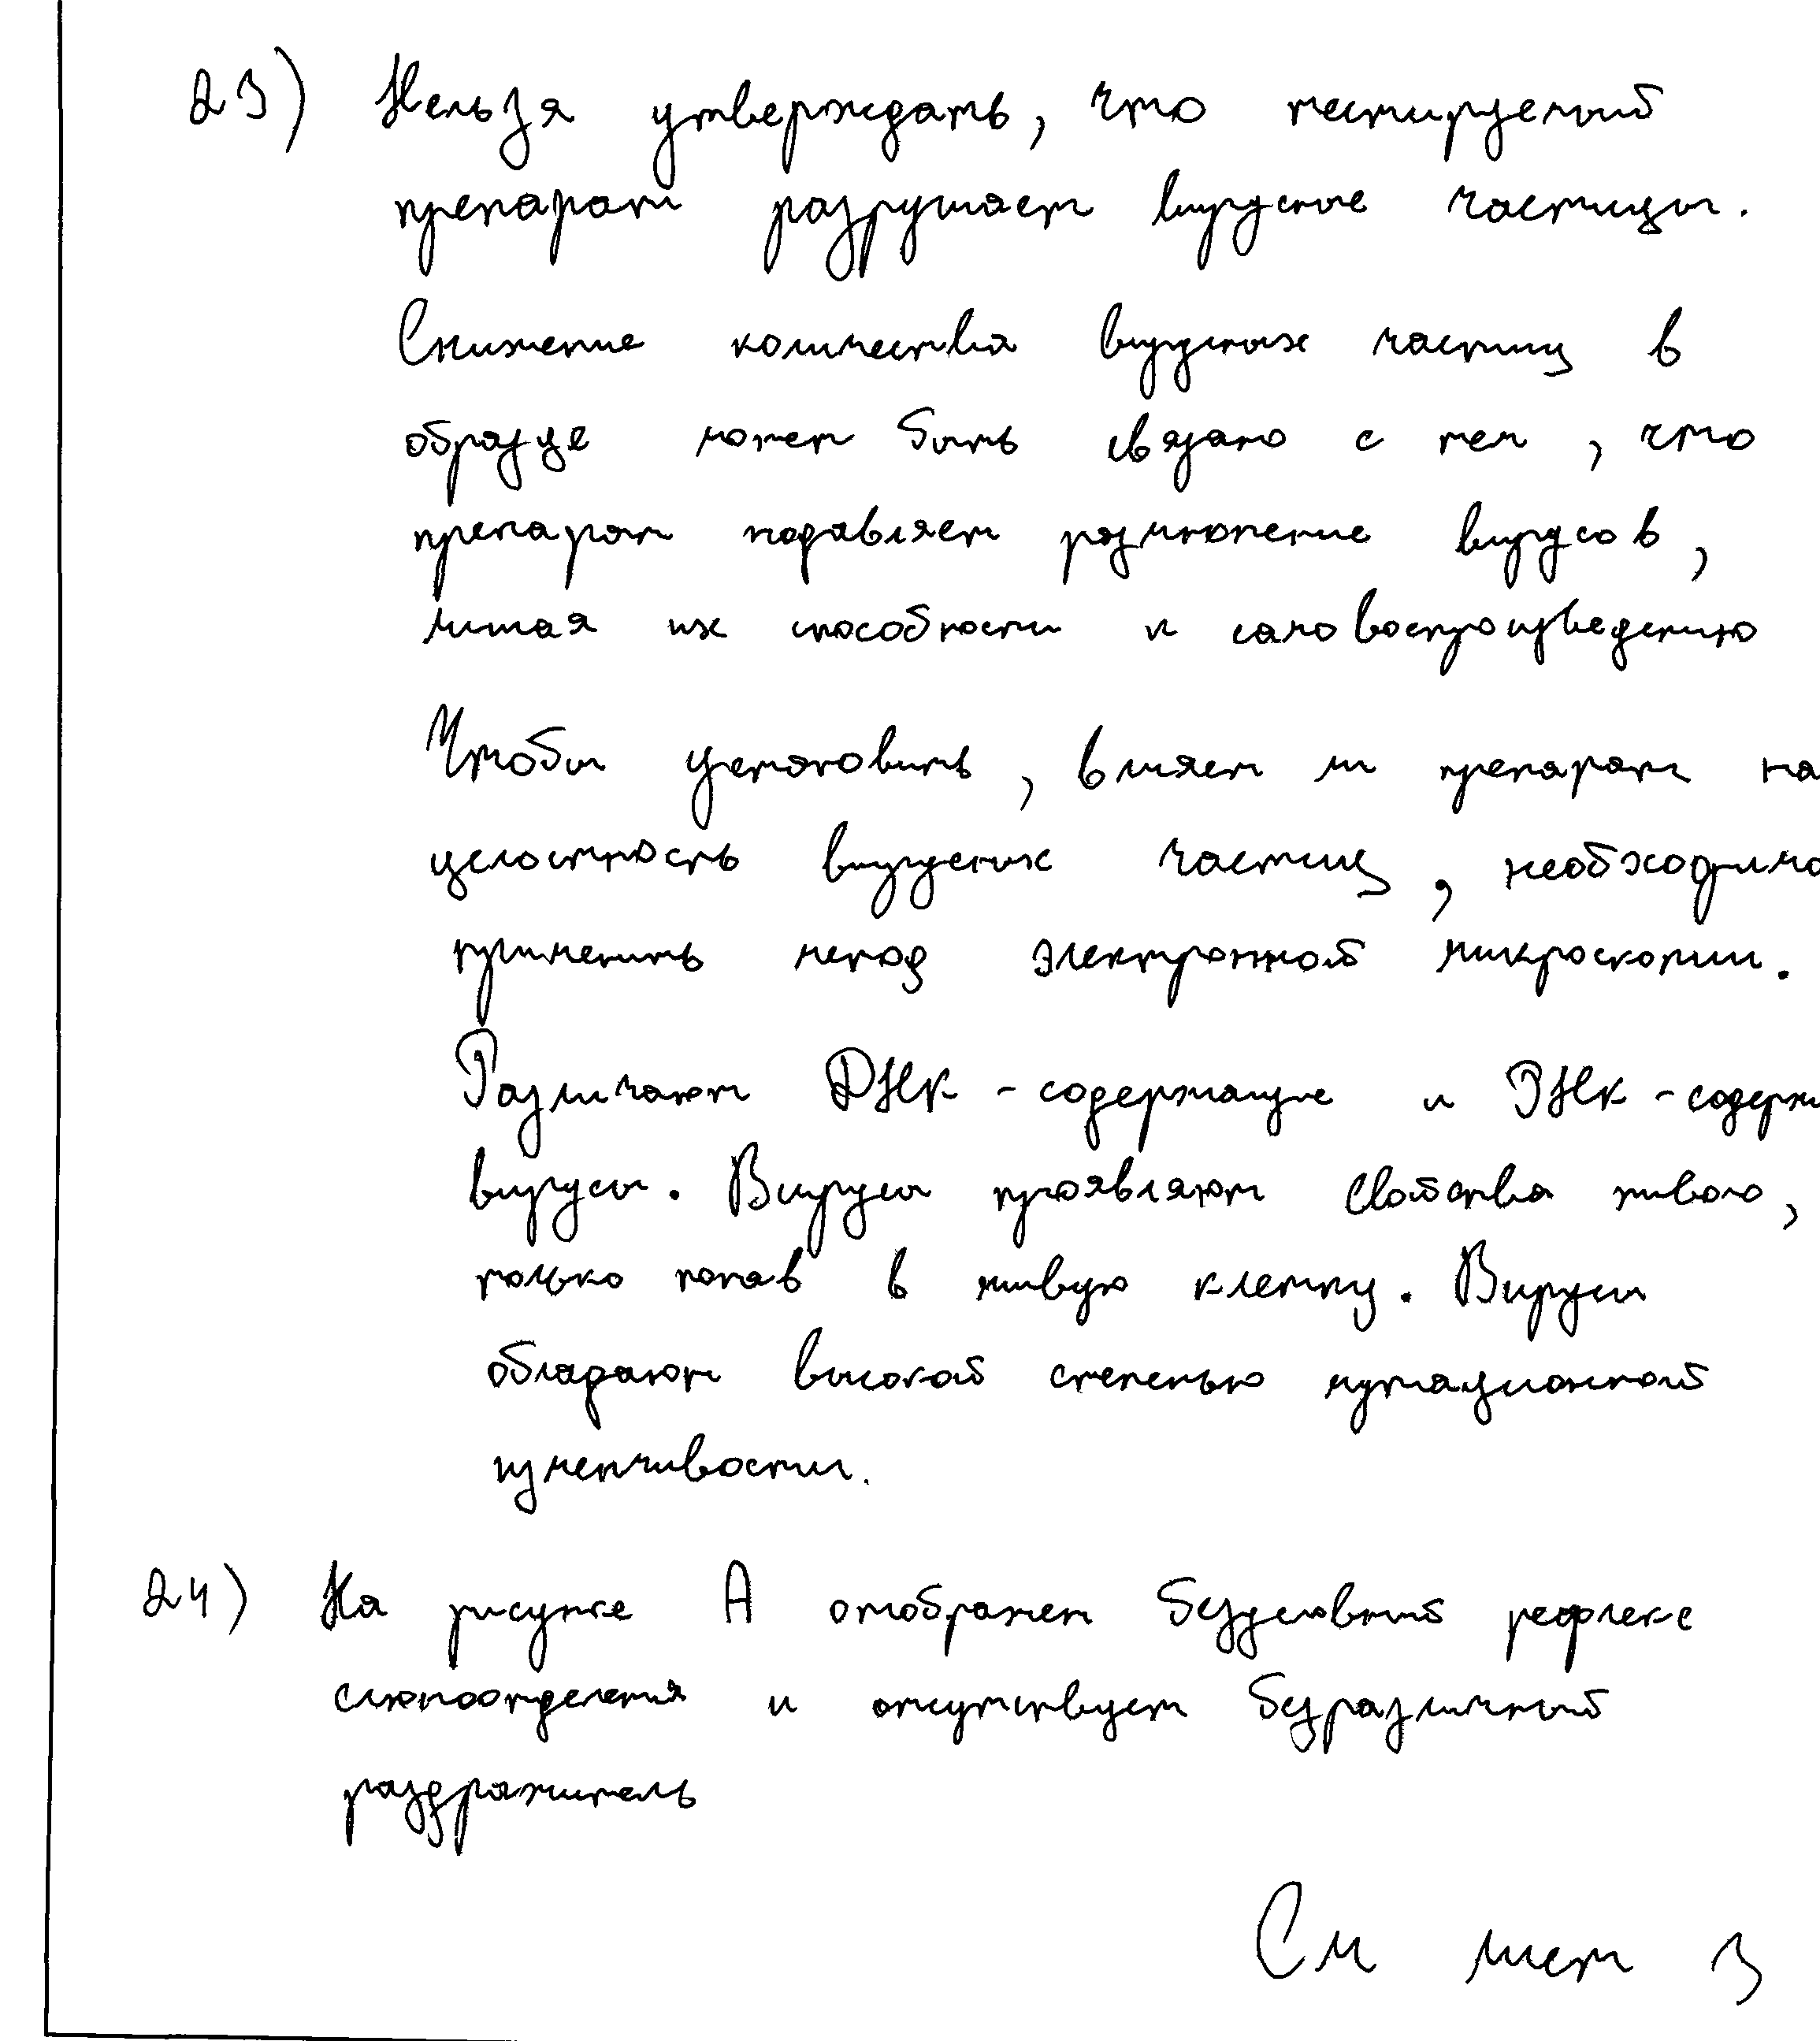 23) Нельзя утверждать, что тестируемый
препарат разрушает вирусные частицы.
Снижение количества вирусных частиц в
образце может быть связано с тем, что
препарат подавляет размножение вирусов,
лишая их способности к самовоспроизведению
Чтобы установить, влияет ли препарат на
целостность вирусных частиц, необходимо
применить метод электронной микроскопии.
Различают ДНК-содержащие и РНК-содерж
вирусы. Вирусы проявляют свойства живого,
только попав в живую клетку. Вирусы
обладают высокой степенью мутационной
изменчивости.
24) На рисунке А отображен безусловный рефлекс
слюноотделения и отсутствует безразличный
раздражитель
См лист 3